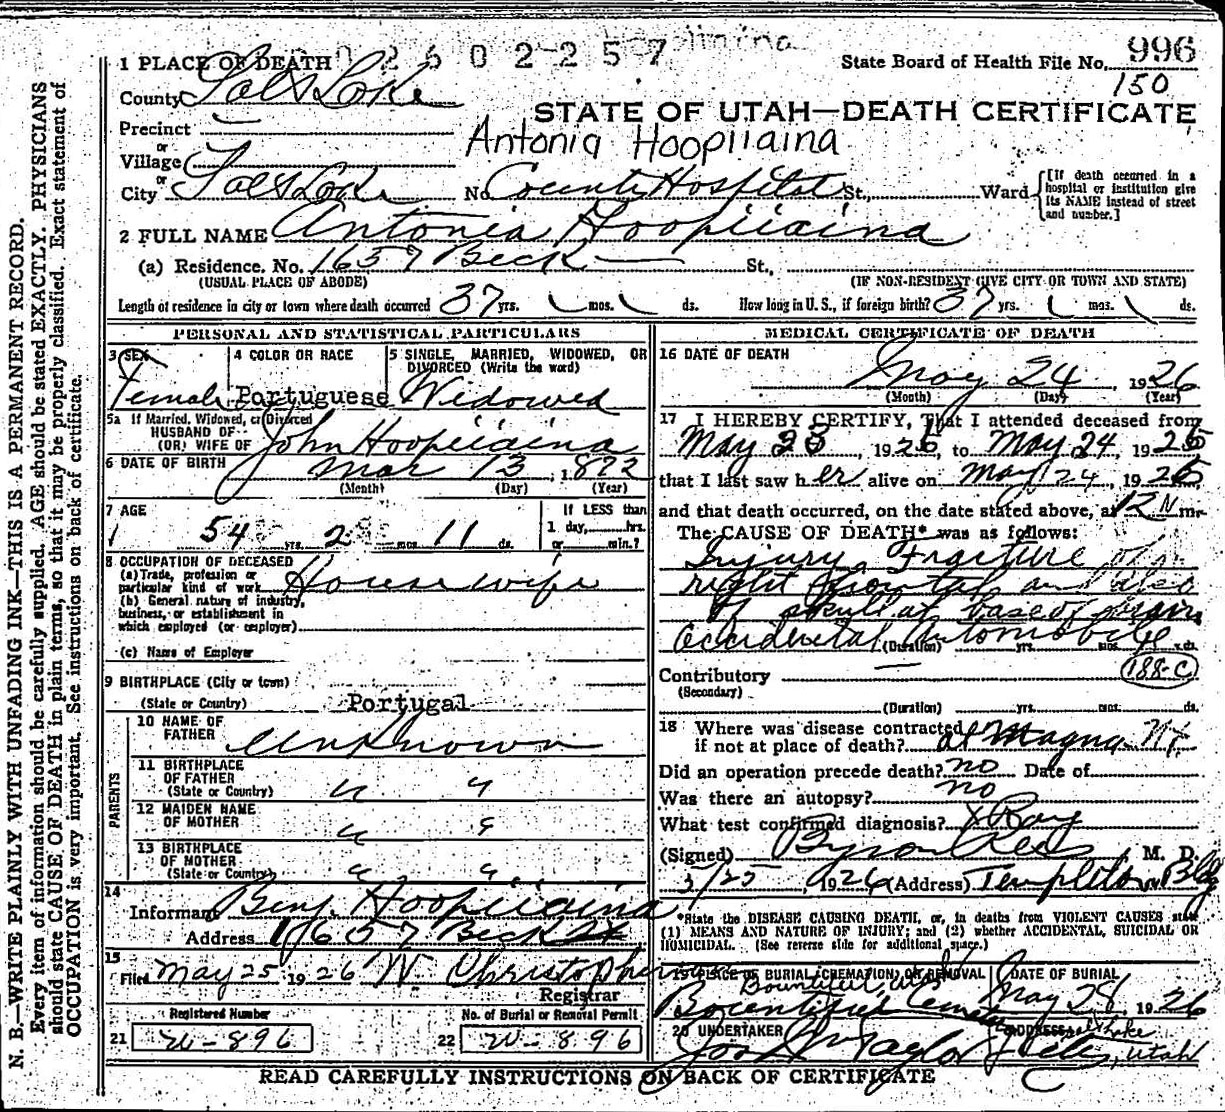 2602257
996
1 PLACE OF DEATH
State Board of Health File No.
150
County Salt Lake
STATE OF UTAH—DEATH CERTIFICATE
Precinct
or
Antonia Hoopiiaina
Village
or
City Salt Lake No. County Hospital St., Ward
[If death occurred in a hospital or institution give its NAME instead of street and number.]
2 FULL NAME Antonia Hoopiiaina
(a) Residence. No. 1657 Beck St.,
(USUAL PLACE OF ABODE) (IF NON-RESIDENT GIVE CITY OR TOWN AND STATE)
Length of residence in city or town where death occurred 37 yrs. mos. ds. How long in U. S., if foreign birth? 37 yrs. mos. ds.
PERSONAL AND STATISTICAL PARTICULARS
3 SEX 4 COLOR OR RACE 5 SINGLE, MARRIED, WIDOWED, OR DIVORCED (Write the word)
Female Portuguese Widowed
5a If Married, Widowed, or Divorced
HUSBAND OF
(OR) WIFE OF John Hoopiiaina
6 DATE OF BIRTH Mar 13, 1872
(Month) (Day) (Year)
7 AGE If LESS than
1 day, hrs.
54 yrs. 2 mos. 11 ds. or min.?
8 OCCUPATION OF DECEASED
(a) Trade, profession or
particular kind of work Housewife
(b) General nature of industry,
business, or establishment in
which employed (or employer)
(c) Name of Employer
9 BIRTHPLACE (City or town)
(State or Country) Portugal
PARENTS
10 NAME OF
FATHER Unknown
11 BIRTHPLACE
OF FATHER
(State or Country) " "
12 MAIDEN NAME
OF MOTHER " "
13 BIRTHPLACE
OF MOTHER
(State or Country) " "
14
Informant Benj. Hoopiiaina
Address 1657 Beck St
15
Filed May 25 1926 W. Christopherson
Registrar
Registered Number No. of Burial or Removal Permit
21 W-896 22 W-896
MEDICAL CERTIFICATE OF DEATH
16 DATE OF DEATH
May 24, 1926
(Month) (Day) (Year)
17 I HEREBY CERTIFY, That I attended deceased from
May 23, 1926, to May 24, 1926
that I last saw her alive on May 24, 1926,
and that death occurred, on the date stated above, at 12 N m.
The CAUSE OF DEATH* was as follows:
Injury. Fracture of
right frontal and also
of skull at base of brain
Accidental Automobile (Duration) yrs. mos. ds.
188-C
Contributory
(Secondary)
(Duration) yrs. mos. ds.
18 Where was disease contracted
if not at place of death? at Magna Ut
Did an operation precede death? no Date of
Was there an autopsy? no
What test confirmed diagnosis? X Ray
(Signed) Byron Rees M. D.
5/25, 1926 (Address) Templeton Bldg
*State the DISEASE CAUSING DEATH, or, in deaths from VIOLENT CAUSES state
(1) MEANS AND NATURE OF INJURY; and (2) whether ACCIDENTAL, SUICIDAL OR
HOMICIDAL. (See reverse side for additional space.)
19 PLACE OF BURIAL, (CREMATION) OR REMOVAL DATE OF BURIAL
Bountiful, Utah
Bountiful Cemetery May 28 1926
20 UNDERTAKER ADDRESS Salt Lake
Jos Wm Taylor City, Utah
READ CAREFULLY INSTRUCTIONS ON BACK OF CERTIFICATE
N. B.—WRITE PLAINLY WITH UNFADING INK—THIS IS A PERMANENT RECORD.
Every item of information should be carefully supplied. AGE should be stated EXACTLY. PHYSICIANS
should state CAUSE OF DEATH in plain terms, so that it may be properly classified. Exact statement of
OCCUPATION is very important. See instructions on back of certificate.